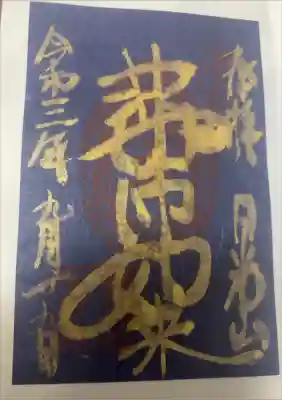 奉拝 日光山
薬師如来
令和三年 九月十六日